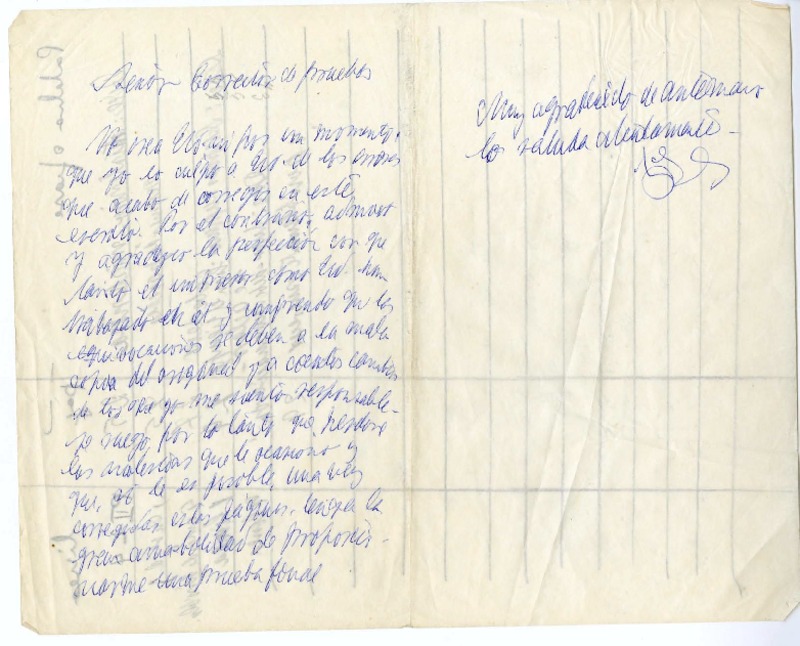 Señor Corrector de pruebas
No crea Ud. ni por un momento,
que yo lo culpo a Ud. de los errores
que acabo de corregir en este
escrito. Por el contrario, admiro
y agradezco la perfección con que
tanto el impresor como Ud. han
trabajado en él y comprendo que las
equivocaciones se deben a la mala
copia del original y a ciertos cambios
de los que yo me siento responsable.
Le ruego, por lo tanto que perdone
las molestias que le ocasiono y
que, si le es posible, una vez
corregidas estas páginas, tenga la
gran amabilidad de proporcio-
narme una prueba final
Muy agradecido de antemano
los saluda atentamente